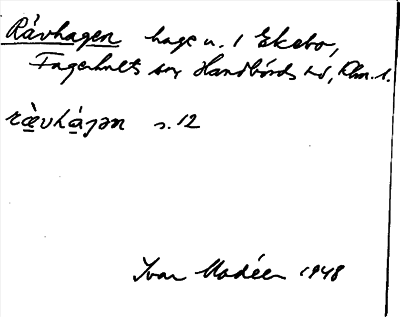 Rävhagen hage u. 1 Ekebo,
Fagerhults sn, Handbörds hd, Klm. l.
rævhágən s. 12
Ivar Modéer 1948